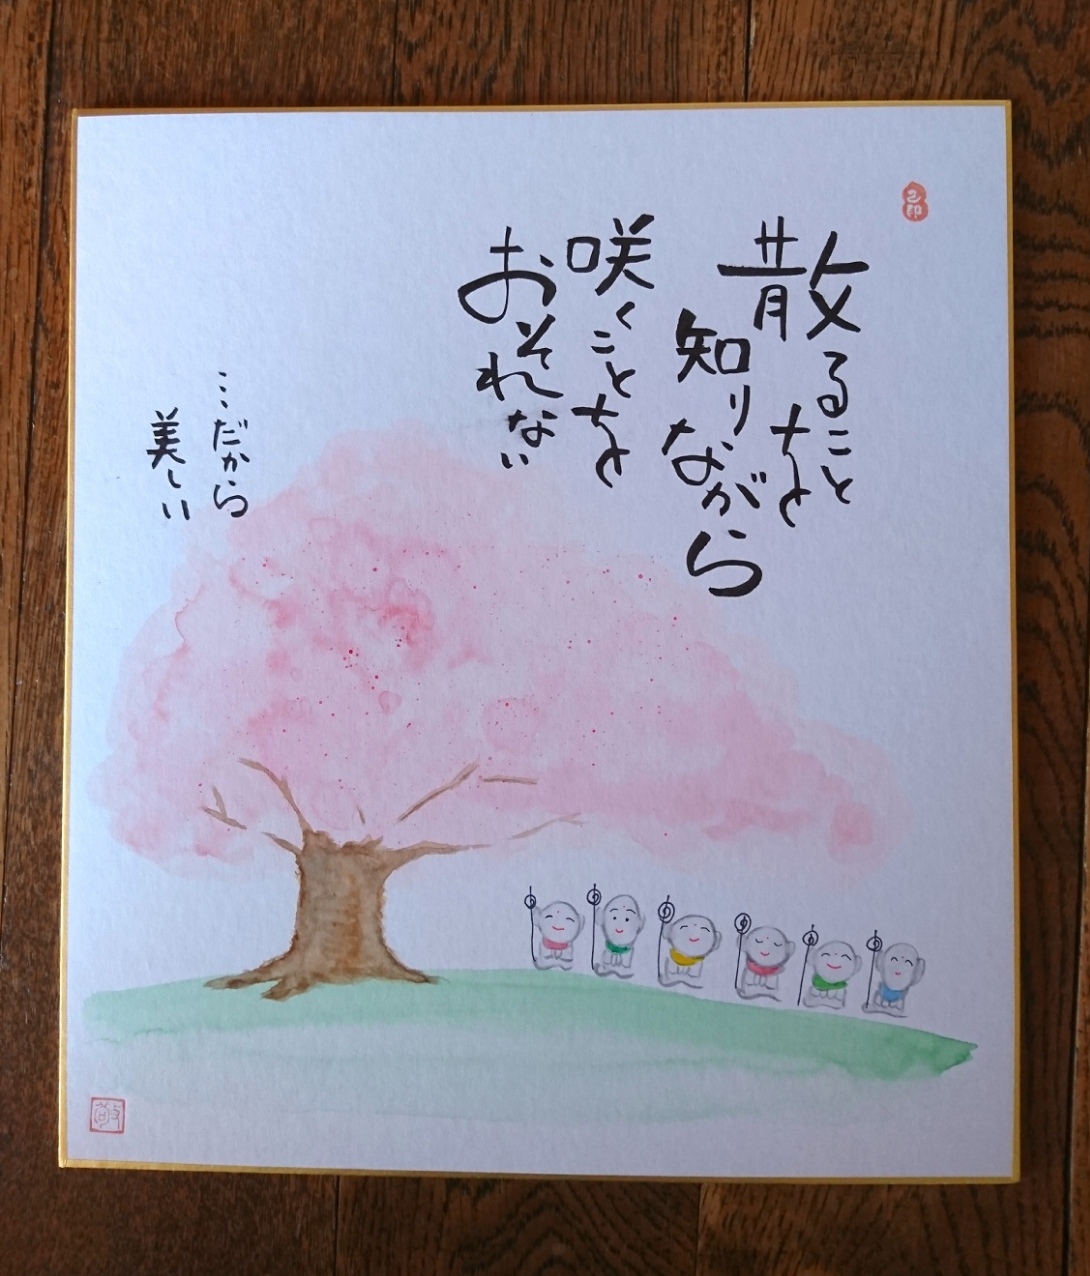 散ること
を
知り
ながら
咲くことを
おそれない
…だから
美しい